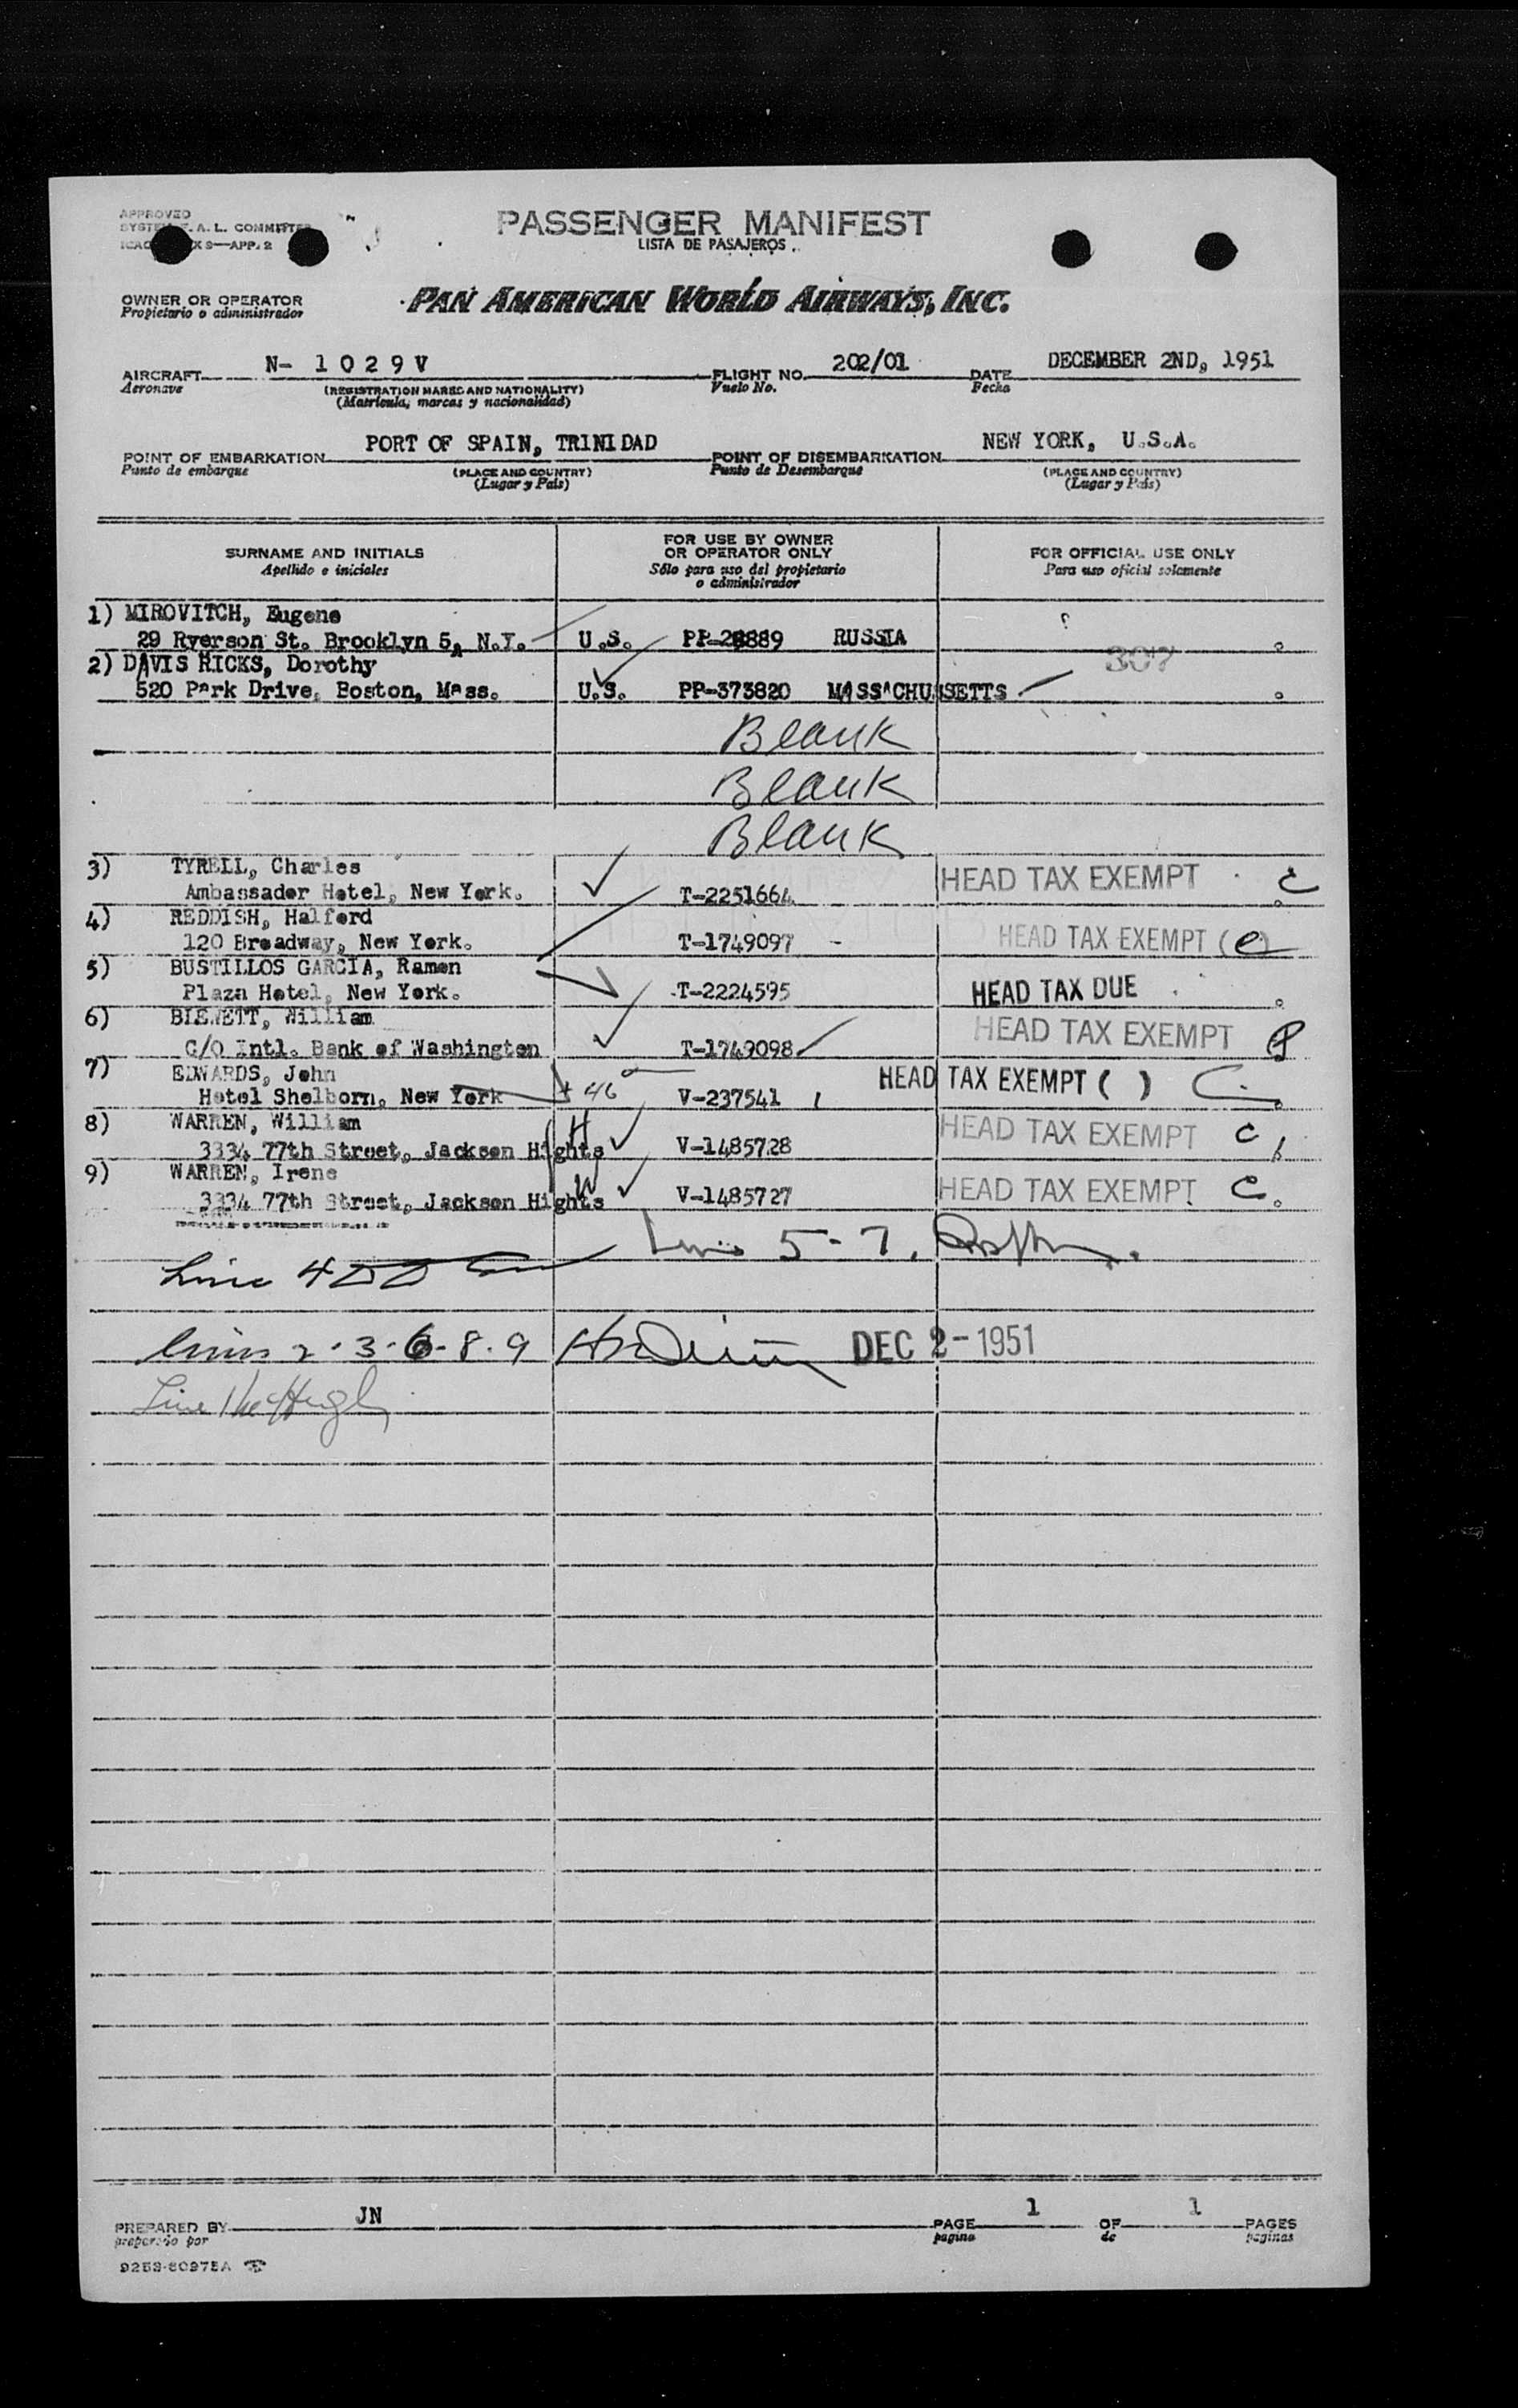 APPROVED
PASSENGER MANIFEST
LISTA DE PASAJEROS
OWNER OR OPERATOR
Propietario o administrador
PAN AMERICAN WORLD AIRWAYS, INC.
AIRCRAFT N- 1 0 2 9 V FLIGHT NO. 202/01 DATE DECEMBER 2ND, 1951
Aeronave (REGISTRATION MARKS AND NATIONALITY) Vuelo No. Fecha
(Matrícula, marcas y nacionalidad)
POINT OF EMBARKATION PORT OF SPAIN, TRINIDAD POINT OF DISEMBARKATION NEW YORK, U.S.A.
Punto de embarque (PLACE AND COUNTRY) Punto de Desembarque (PLACE AND COUNTRY)
(Lugar y País) (Lugar y País)
SURNAME AND INITIALS
Apellido e iniciales
FOR USE BY OWNER
OR OPERATOR ONLY
Sólo para uso del propietario
o administrador
FOR OFFICIAL USE ONLY
Para uso oficial solamente
1) MIROVITCH, Eugene
29 Ryerson St. Brooklyn 5, N.Y. U.S. RUSSIA
2) DAVIS HICKS, Dorothy 307
520 Park Drive, Boston, Mass. U.S. PP-373820 MASSACHUSSETTS
Blank
Blank
Blank
3) TYRELL, Charles
Ambassador Hotel, New York. T-2251664 HEAD TAX EXEMPT C
4) REDDISH, Halford
120 Broadway, New York. T-1749097 - HEAD TAX EXEMPT (C)
5) BUSTILLOS GARCIA, Ramon
Plaza Hotel, New York. T-2224595 HEAD TAX DUE
6) William
C/O Intl. Bank of Washington T-1749098 HEAD TAX EXEMPT
7) EDWARDS, John
Hotel Shelborn, New York 46 V-237541 HEAD TAX EXEMPT ( ) C
8) WARREN, William H
3334 77th Street, Jackson Hights V-1485728 HEAD TAX EXEMPT C
9) WARREN, Irene W
3334 77th Street, Jackson Hights V-1485727 HEAD TAX EXEMPT C
5-7
Line 4
Lines 2-3-6-8-9 DEC 2-1951
Line 1
PREPARED BY JN PAGE 1 OF 1 PAGES
preparado por pagina de paginas